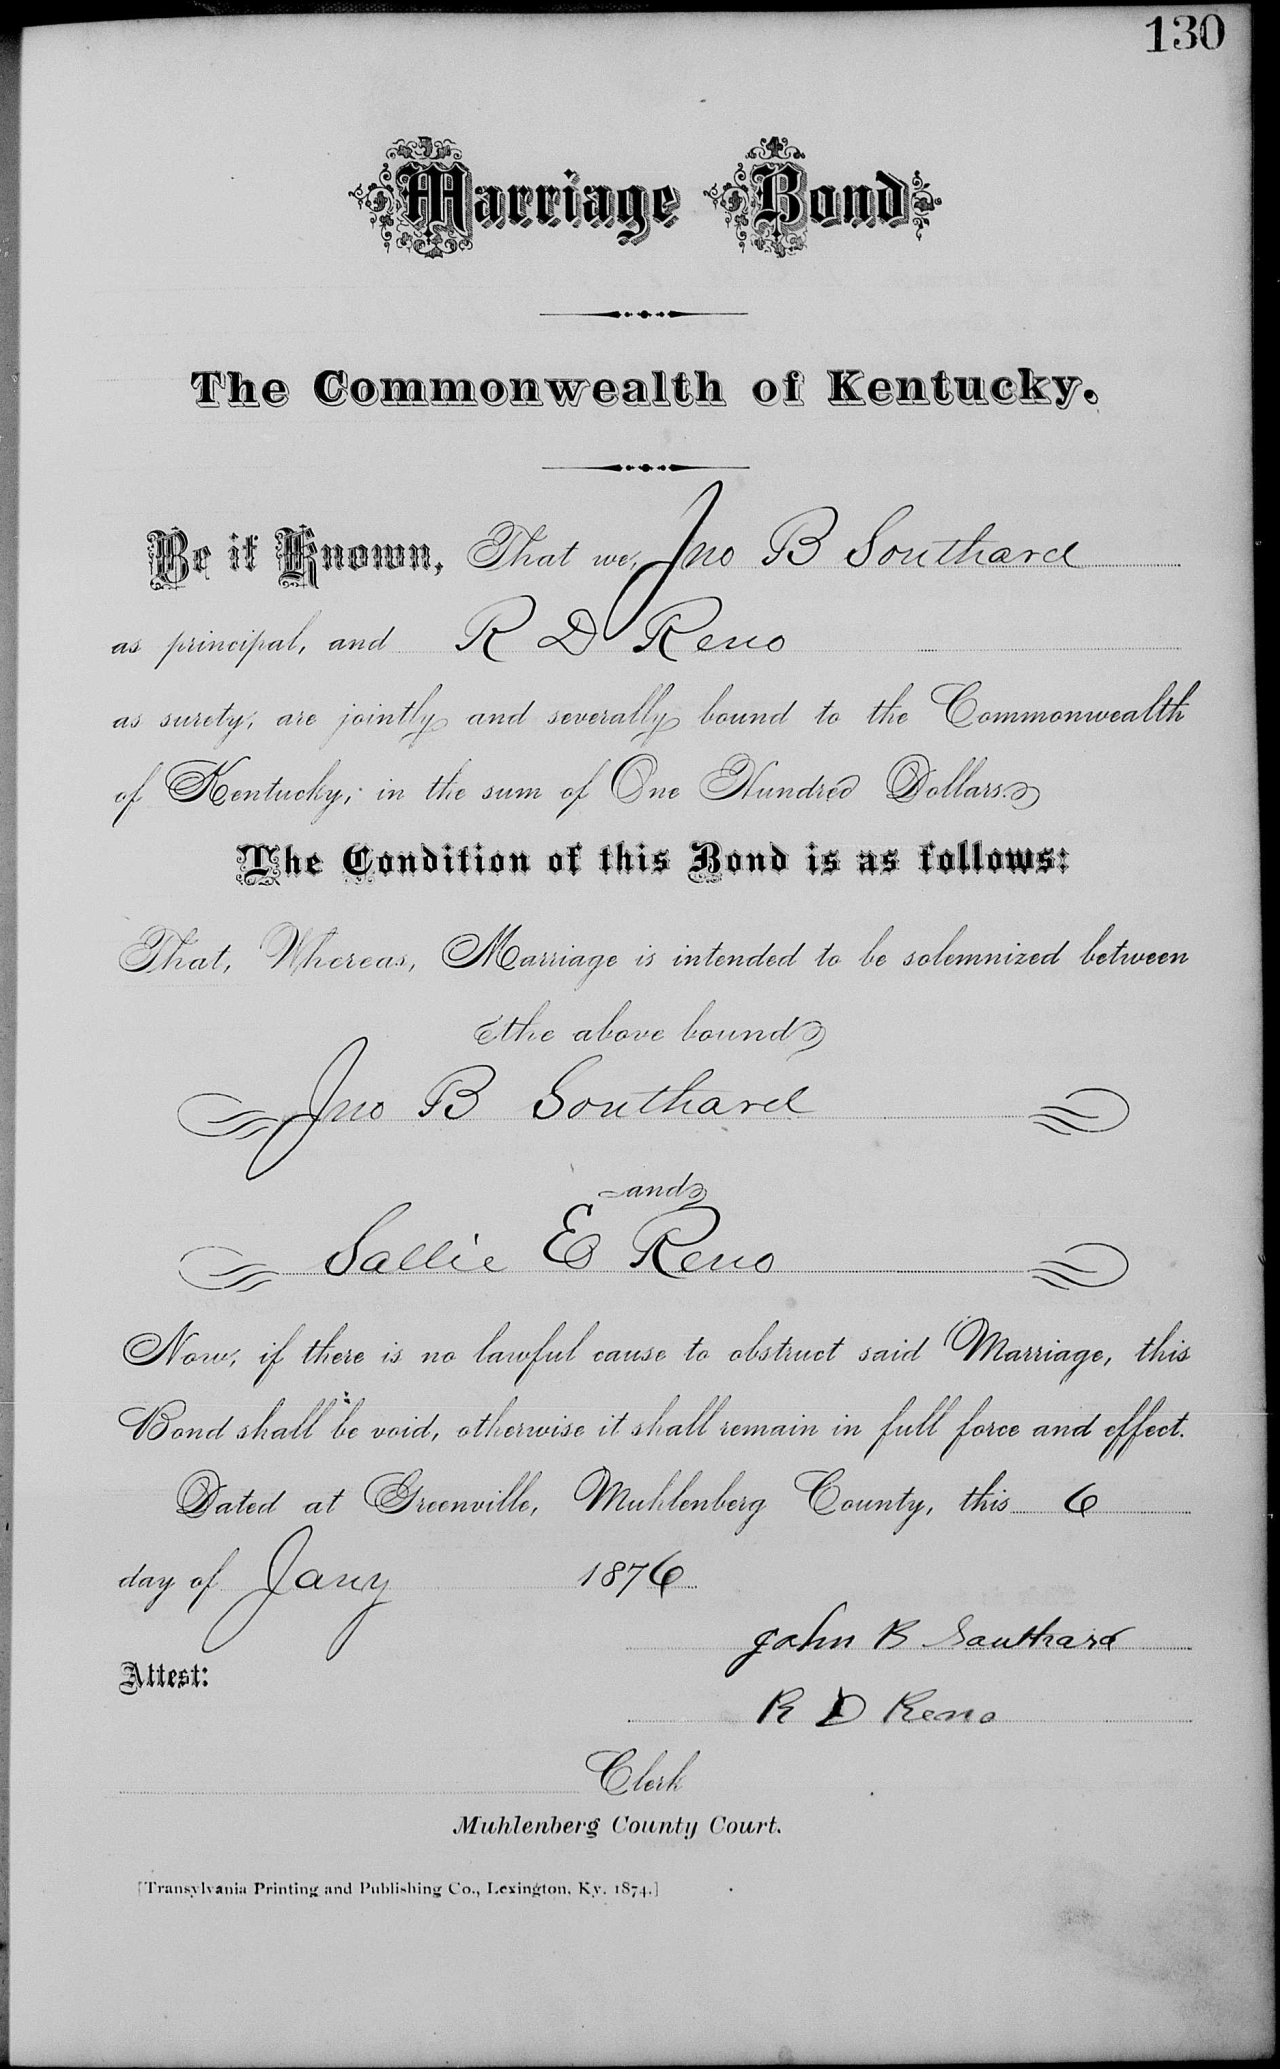 130
Marriage Bond.
The Commonwealth of Kentucky.
Be it Known, That we, Jno B Southard
as principal, and R D Reno
as surety, are jointly and severally bound to the Commonwealth
of Kentucky, in the sum of One Hundred Dollars.
The Condition of this Bond is as follows:
That, Whereas, Marriage is intended to be solemnized between
the above bound
Jno B Southard
and
Sallie E Reno
Now, if there is no lawful cause to obstruct said Marriage, this
Bond shall be void, otherwise it shall remain in full force and effect.
Dated at Greenville, Muhlenberg County, this 6
day of Jany 1876
John B Southard
Attest:
R D Reno
Clerk
Muhlenberg County Court.
[Transylvania Printing and Publishing Co., Lexington, Ky. 1874.]